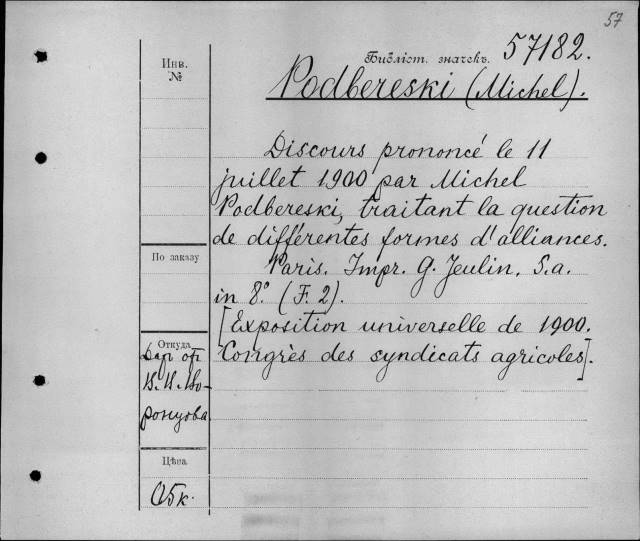 57
Библіот. значекъ. 57182.
Podbereski (Michel).
Инв.
№
Discours prononcé le 11
juillet 1900 par Michel
Podbereski, traitant la question
de différentes formes d'alliances.
Paris. Impr. G. Jeulin. S.a.
in 8º. (F. 2).
[Exposition universelle de 1900.
Congrès des syndicats agricoles].
По заказу
Откуда
Дар от
В. В. Во-
ронцова
Цѣна
05к.